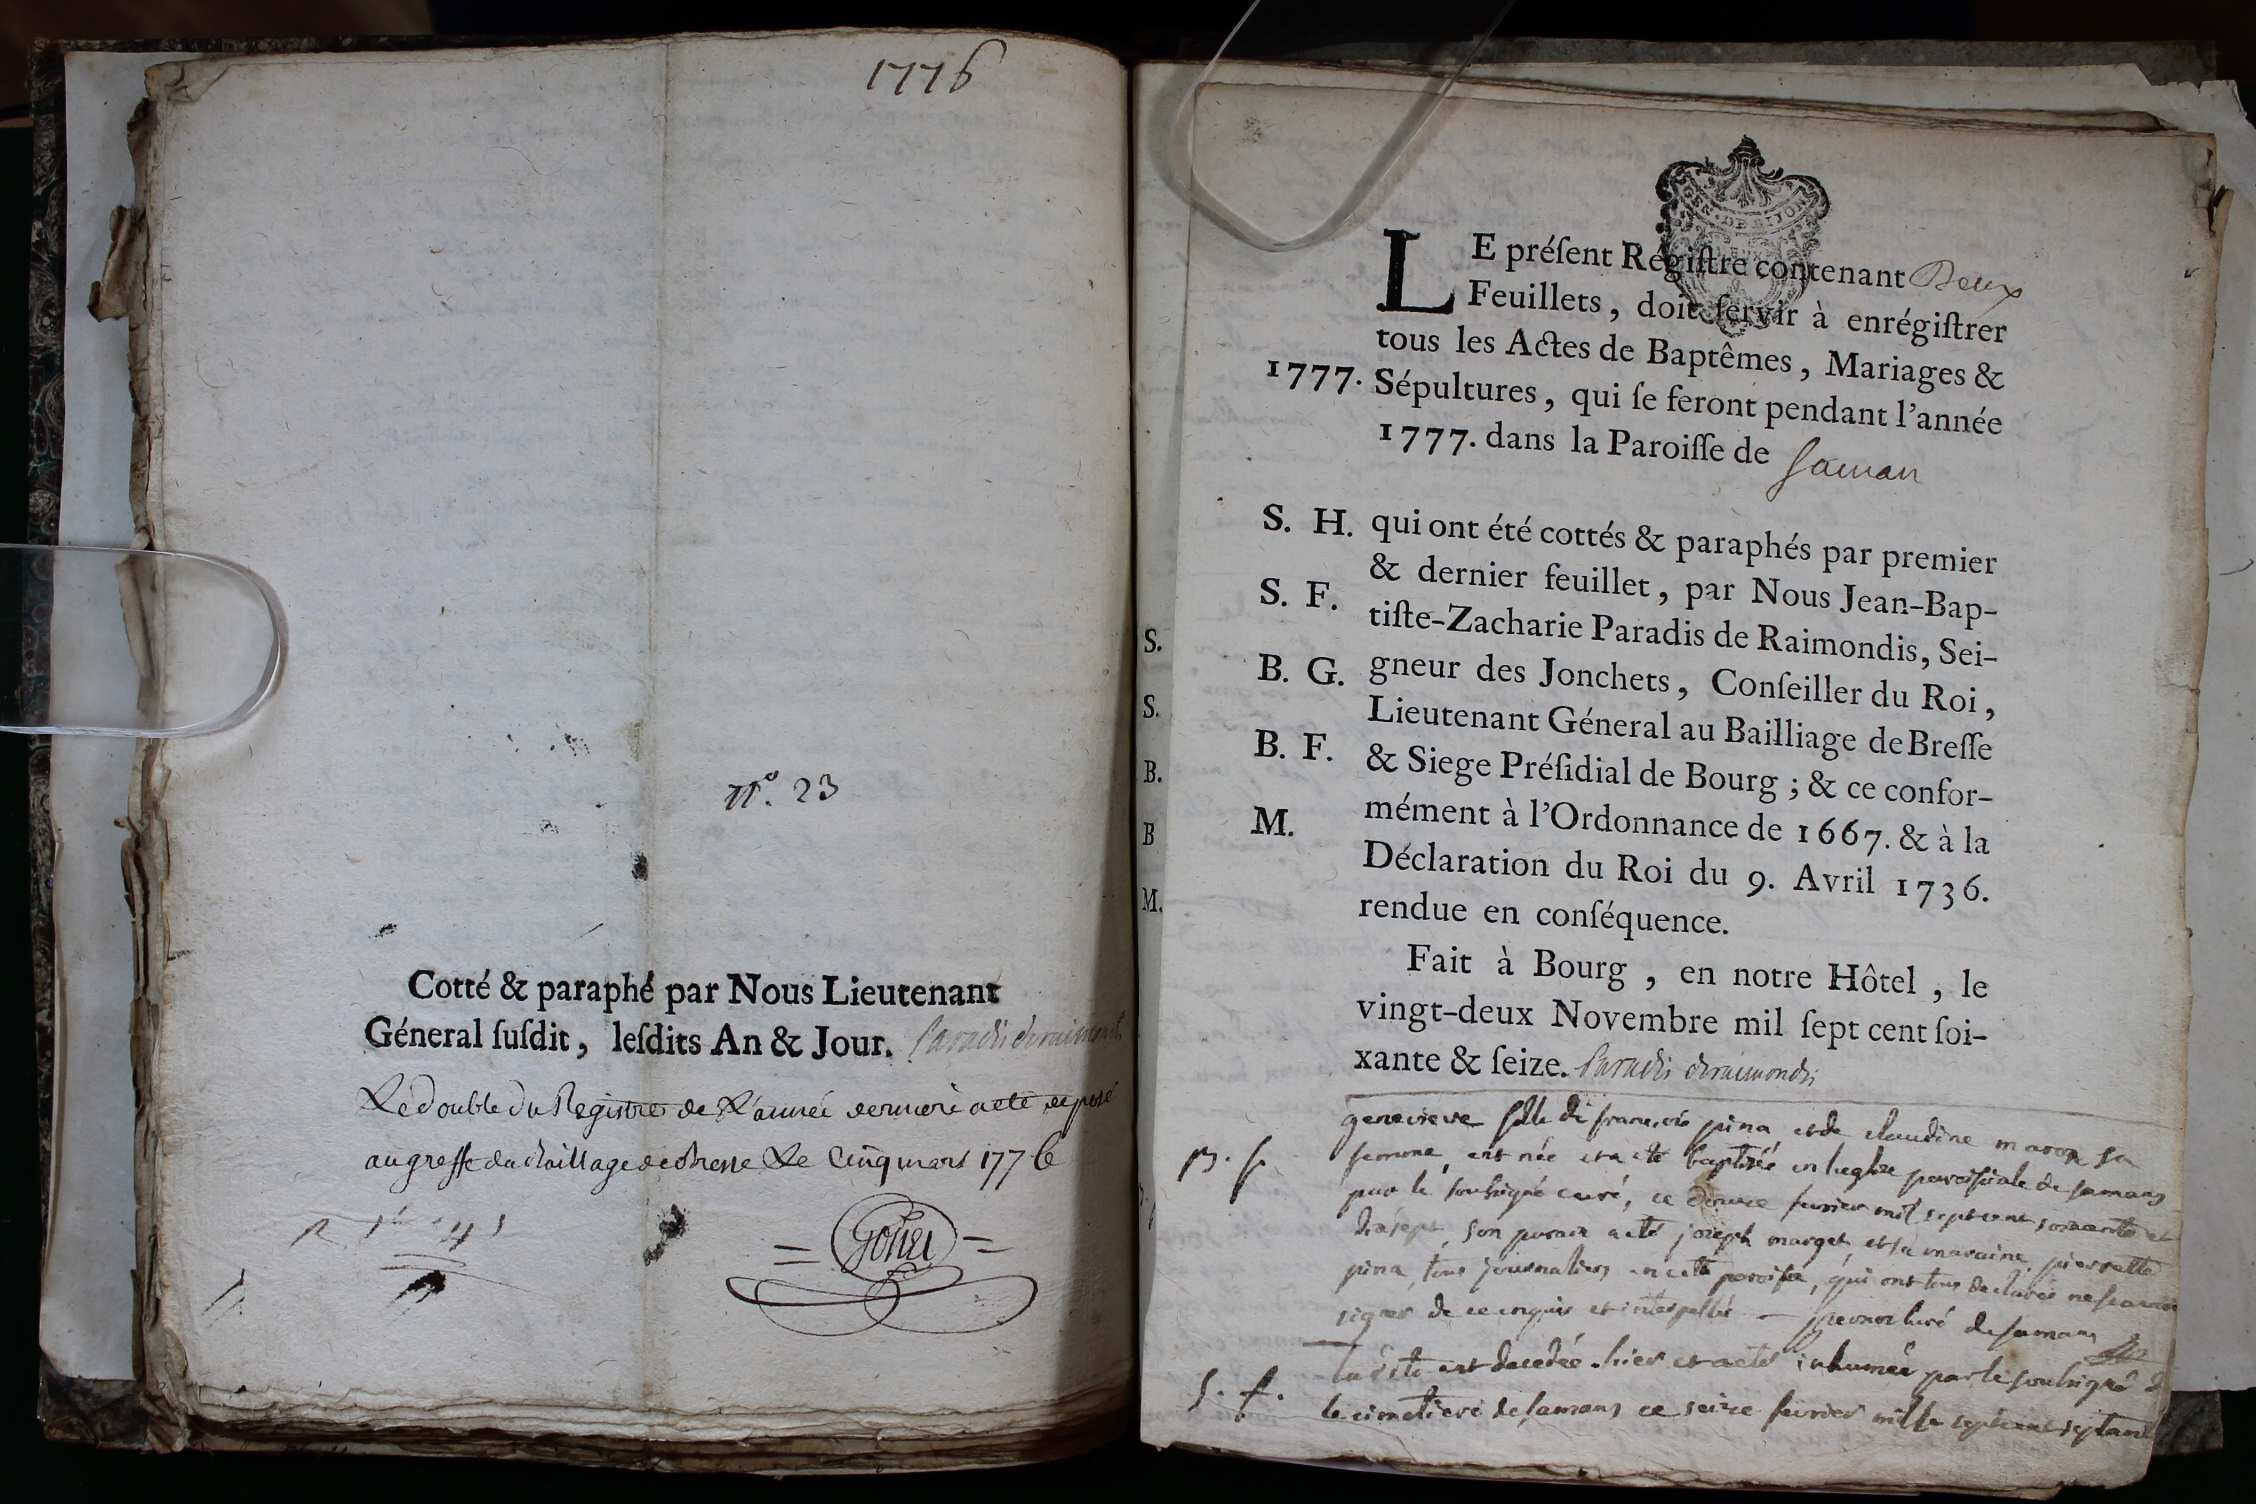 1776
n.º 23
Cotté & paraphé par Nous Lieutenant
Géneral ſuſdit, leſdits An & Jour. Paradis deraimondis
Le double du Registre de L'année derniere a eté deposé
au greffe du Bailliage de Bresse Le Cinq mars 1776
Gohei
GEN. DE DIJON
LE préſent Régiſtre contenant Deux
Feuillets, doit ſervir à enrégiſtrer
tous les Actes de Baptêmes, Mariages &
1777. Sépultures, qui ſe feront pendant l'année
1777. dans la Paroiſſe de Saman
S. H. qui ont été cottés & paraphés par premier
& dernier feuillet, par Nous Jean-Bap-
S. F. tiſte-Zacharie Paradis de Raimondis, Sei-
B. G. gneur des Jonchets, Conſeiller du Roi,
Lieutenant Géneral au Bailliage de Breſſe
B. F. & Siege Préſidial de Bourg; & ce confor-
M. mément à l'Ordonnance de 1667. & à la
Déclaration du Roi du 9. Avril 1736.
rendue en conſéquence.
Fait à Bourg, en notre Hôtel, le
vingt-deux Novembre mil ſept cent ſoi-
xante & ſeize. Paradis deraimondis
S.
S.
B.
B
M.
genevieve fille de francois pina et de claudine maron sa
B. f. femme, est née et a eté baptisée en l'eglise paroissiale de samans
par le soussigné curé, ce douze fevrier mil sept cent soixante et
dixsept, son parain a eté joseph marget, et sa maraine pierrette
pina, tous journaliers en cette paroisse, qui ont tous declarés ne scavoir
signer de ce enquis et interpellés - curé de samans
S. f. ladite est decedée hier et a eté inhumée par le soussigné d
le cimetiere de samans ce seize fevrier mille sept cent septant